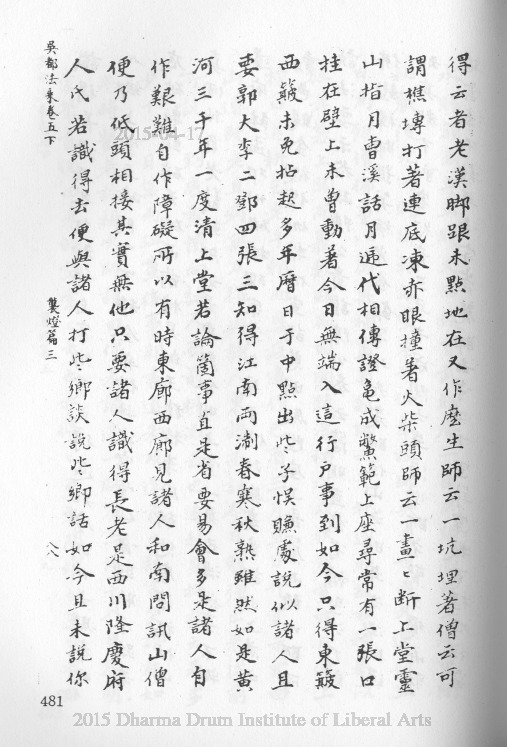 得云者老漢脚跟未點地在又作麼生師云一坑埋著僧云可
謂樵塼打著連底凍赤眼撞著火柴頭師云一畫畫斷上堂靈
山指月曹溪話月遞代相傳證龜成鱉範上座尋常有一張口
挂在壁上未曾動著今日無端入這行戶事到如今只得東簸
西簸未免拈起多年曆日于中點出些子悮賺處說似諸人且
要郭大李二鄧四張三知得江南兩淛春寒秋熟雖然如是黃
河三千年一度清上堂若論箇事直是省要易會多是諸人自
作艱難自作障礙所以有時東廊西廊見諸人和南問訊山僧
便乃低頭相接其實無他只要諸人識得長老是西川隆慶府
人氏若識得去便與諸人打些鄉談說些鄉話如今且未說你
吳都法乘卷五下
襲燈篇三
八八
481
2015-04-17
2015 Dharma Drum Institute of Liberal Arts